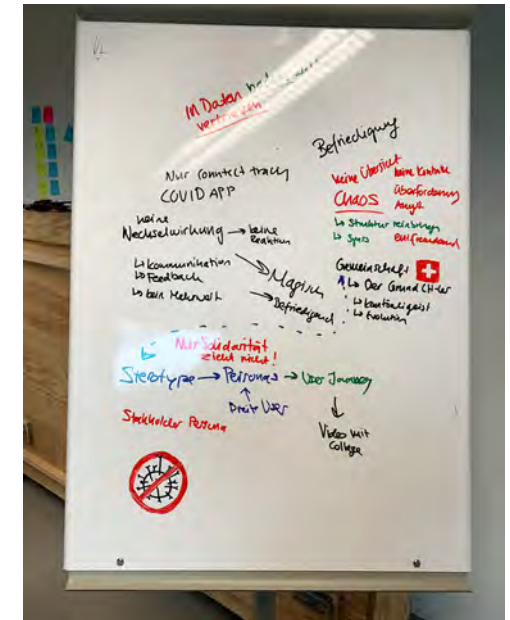 VL
IN Daten
vertrieben
Befriedigung
Nur Conntect tracy
COVID APP
keine Übersicht
keine Kontrolle
CHAOS
überforderung
Angst
↳ Struktur reinbringen
↳ Spass
keine
Wechselwirkung → keine
Reaktion
↳ Kommunikation
↳ Feedback
↳ kein Mehrwert
→ Magisch
→ Befriedigend
Gemeinschaft
↳ Der Grund CH-ler
↳ Evolution
Nur Solidarität
zieht nicht!
Sterotype → Personas → User Journey
↑
Dreite User
↓
Video mit
College
Stakholder Persona